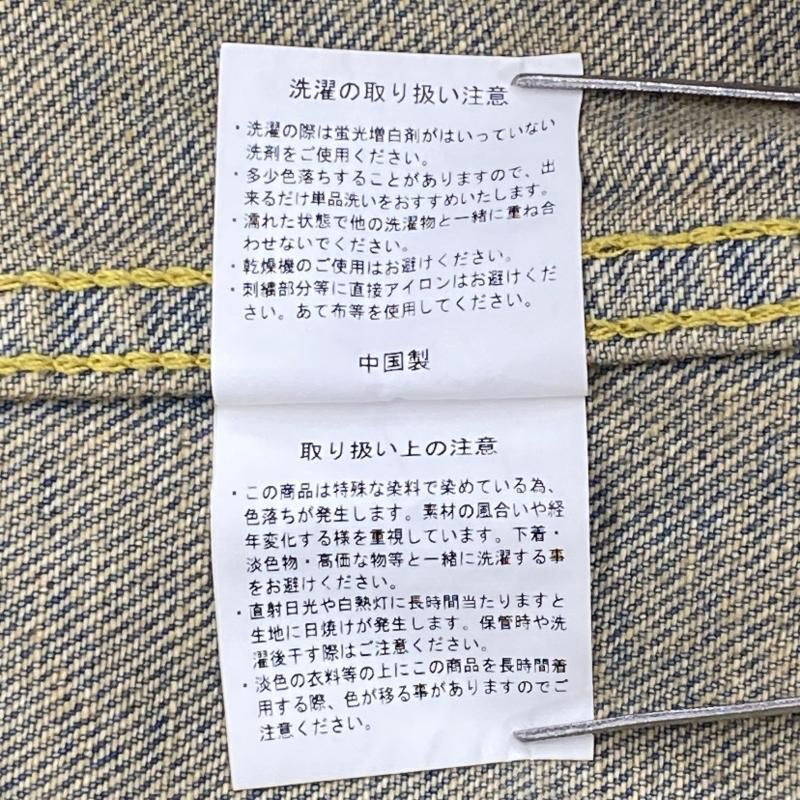 洗濯の取り扱い注意
・洗濯の際は蛍光増白剤がはいっていない
洗剤をご使用ください。
・多少色落ちすることがありますので、出
来るだけ単品洗いをおすすめいたします。
・濡れた状態で他の洗濯物と一緒に重ね合
わせないでください。
・乾燥機のご使用はお避けください。
・刺繍部分等に直接アイロンはお避けくだ
さい。あて布等を使用してください。
中国製
取り扱い上の注意
・この商品は特殊な染料で染めている為、
色落ちが発生します。素材の風合いや経
年変化する様を重視しています。下着・
淡色物・高価な物等と一緒に洗濯する事
をお避けください。
・直射日光や白熱灯に長時間当たりますと
生地に日焼けが発生します。保管時や洗
濯後干す際はご注意ください。
・淡色の衣料等の上にこの商品を長時間着
用する際、色が移る事がありますのでご
注意ください。